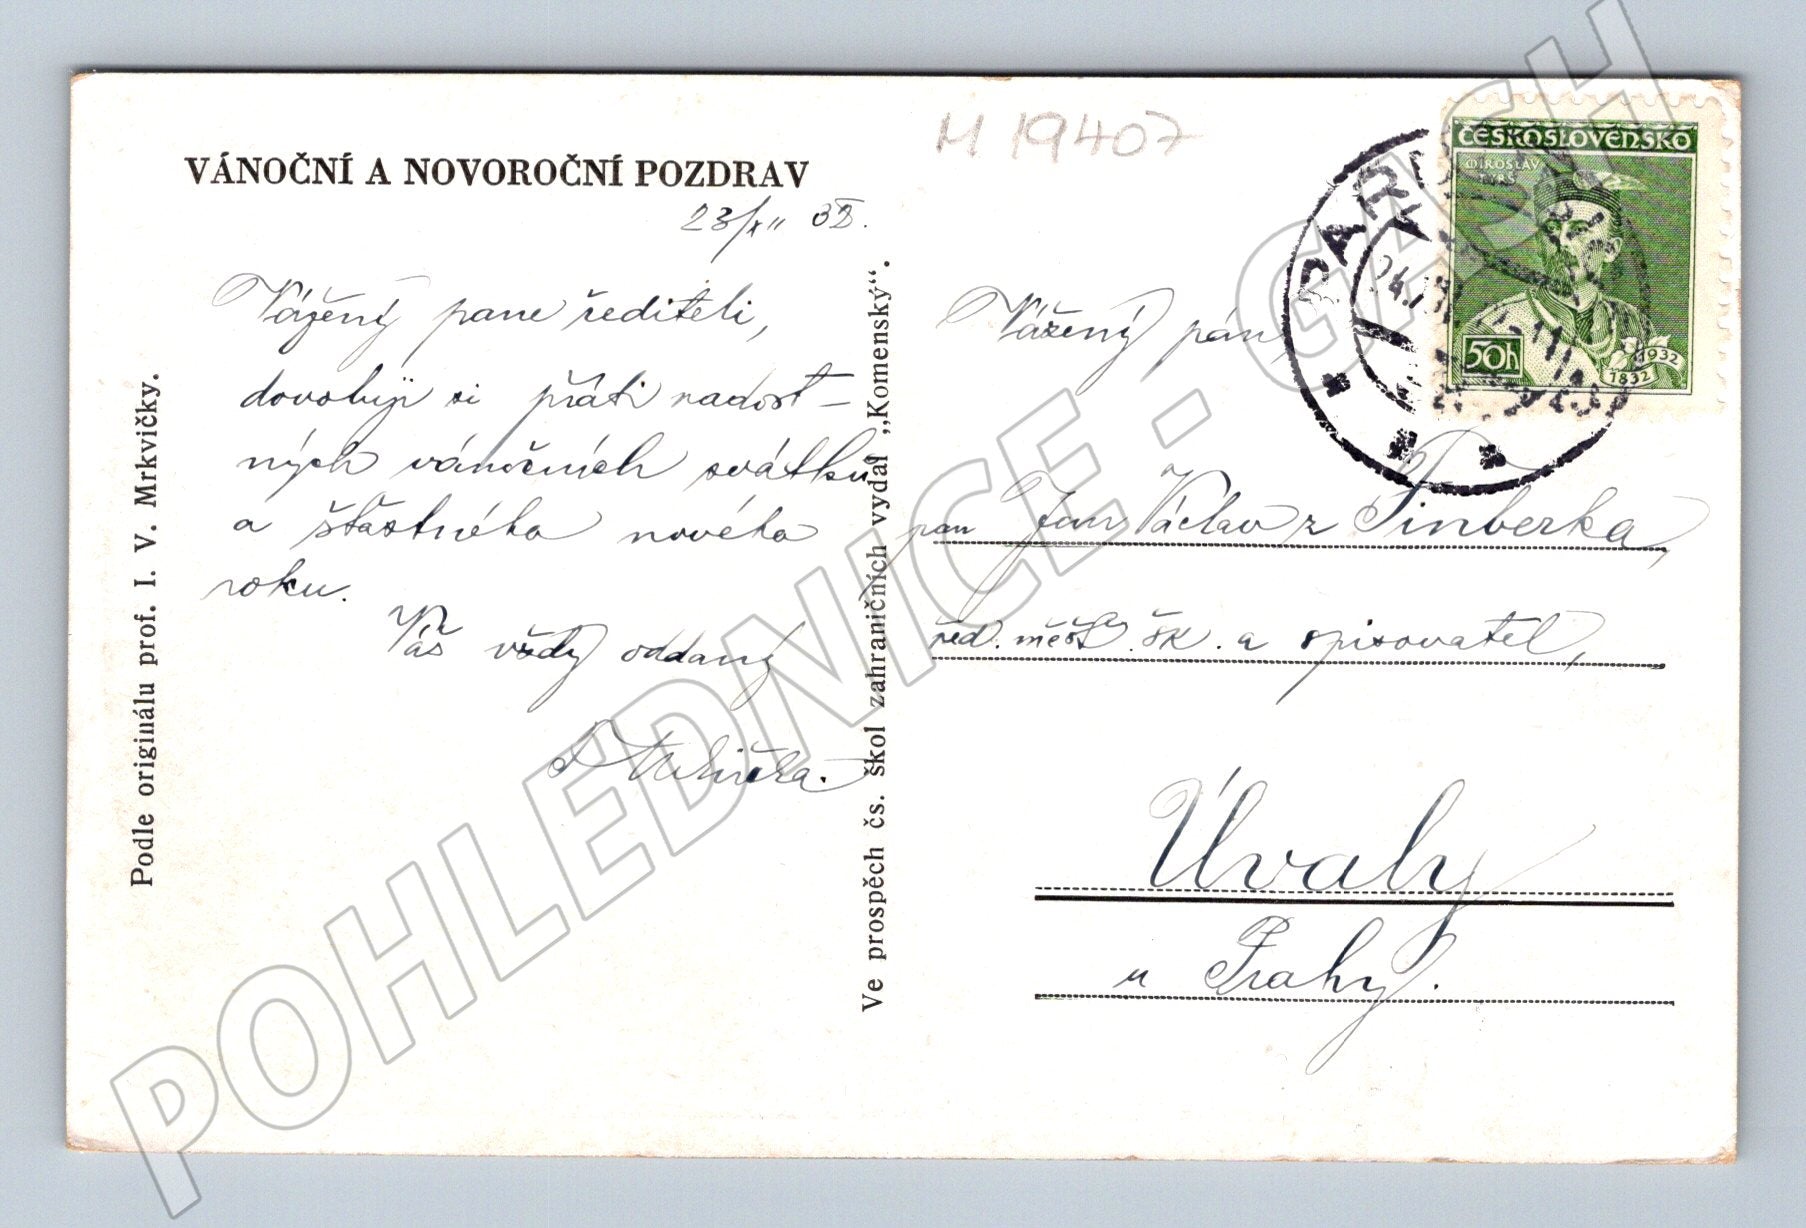 VÁNOČNÍ A NOVOROČNÍ POZDRAV
23/XII 32.
Vážený pane řediteli,
dovoluji si přáti radost-
ných vánočních svátků
a šťastného nového
roku.
Váš vždy oddaný
Podle originálu prof. I. V. Mrkvičky.
Ve prospěch čs. škol zahraničních vydal „Komenský“.
M 19407
ČESKOSLOVENSKO
MIROSLAV
TYRŠ
50h
1832 1932
PARDUBICE
24.XII
Vážený pán,
pan Jan Václav z Finberka,
řed. měšť. šk. a spisovatel,
Úvaly
u Prahy.
POHLEDNICE - GASH